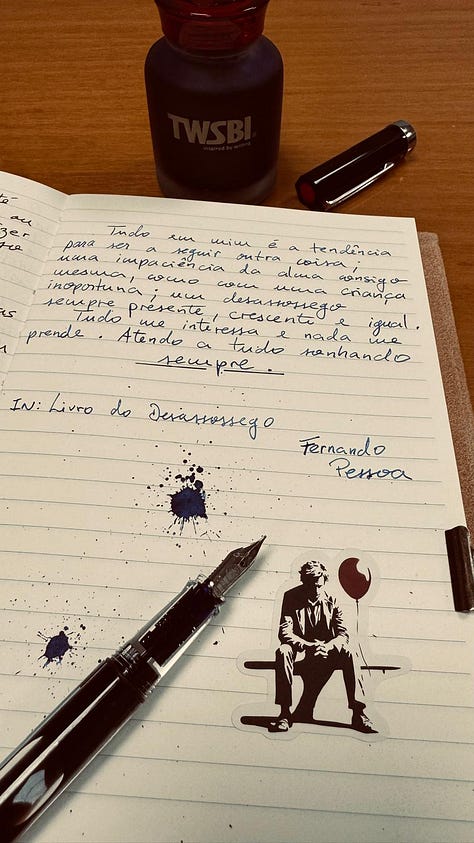 TWSBI
inspired by writing
té
au
zer
as
Tudo em mim é a tendência
para ser a seguir outra coisa;
uma impaciência da alma consigo
mesma, como com uma criança
inoportuna; um desassossego
sempre presente, crescente e igual.
Tudo me interessa e nada me
prende. Atendo a tudo sonhando
sempre.
IN: Livro do Desassossego
Fernando
Pessoa